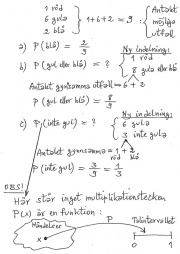 1 röd
6 gula } 1+6+2 = 9 : Antalet
2 blå möjliga
utfall
a) P(blå) = 2/9
Ny indelning:
1 röd
b) P(gul eller blå) = ?
8 gula eller blå
Antalet gynsamma utfall = 6 + 2
P(gul eller blå) = 8/9
Ny indelning:
6 gula
c) P(inte gul) = ?
3 inte gula
Antalet gynnsamma = 1 + 2
röd blå
P(inte gul) = 3/9 = 1/3
OBS!
Här står inget multiplikationstecken
P(x) är en funktion :
Händelser P Talintervallet
x 0 1